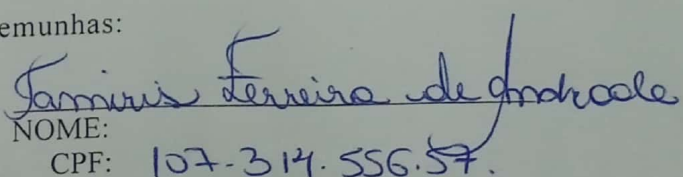 emunhas:
Tamiris Ferreira de Andrade
NOME:
CPF: 107-314.556.57.